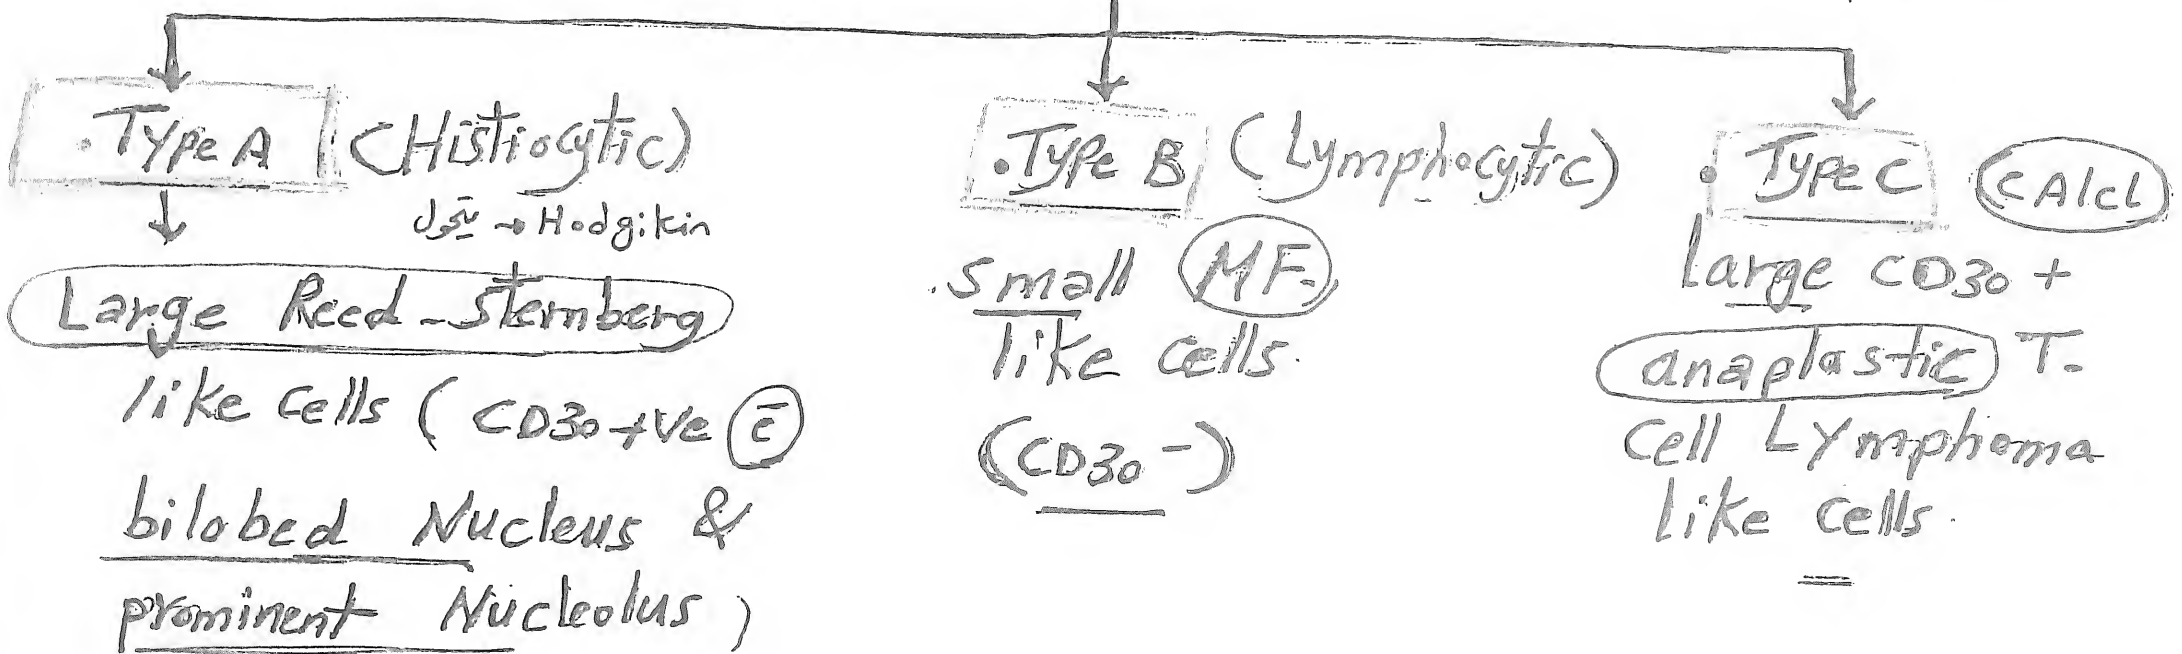 . Type A (Histiocytic)
→ Hodgikin
Large Reed-Sternberg
like cells ( CD30 +ve c̄
bilobed Nucleus &
prominent Nucleolus )
. Type B (Lymphocytic)
. small MF.
like cells.
(CD30 -)
. Type C cAlcl
large CD30 +
anaplastic T.
cell Lymphoma
like cells.